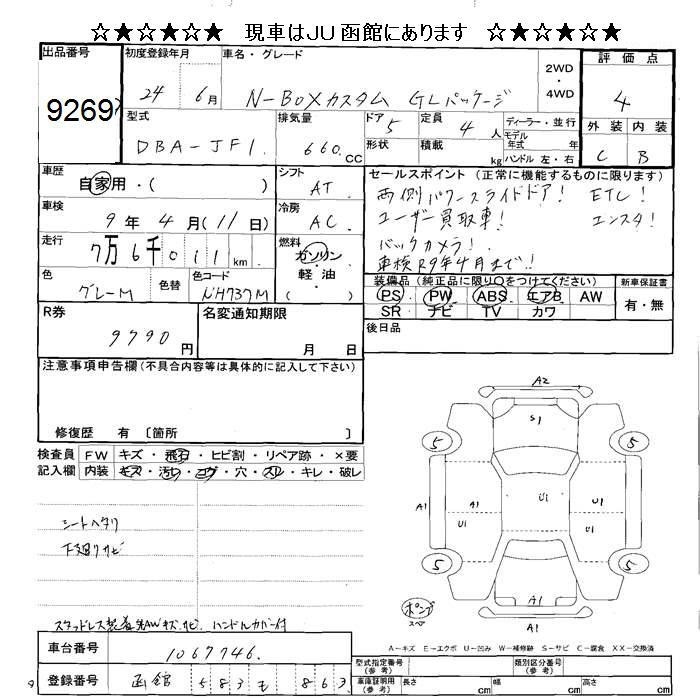 ☆★☆★☆★ 現車はJU函館にあります ☆★☆★☆★
出品番号 初度登録年月 車名・グレード 2WD・4WD 評価点
9269 24 6月 N-BOXカスタム GLパッケージ 4
型式 排気量 ドア 定員 ディーラー・並行 外装 内装
DBA-JF1. 660.CC 5 4人 モデル年式 年 C B
形状 積載 kg ハンドル 左・右
車歴 シフト セールスポイント(正常に機能するものに限ります)
自家用・( ) AT 両側パワースライドドア! ETC!
車検 冷房 ユーザー買取車! エンスタ!
9年4月(11日) AC バックカメラ!
走行 燃料 車検R9年4月まで!!
7万6千011km ガソリン・軽油 ( )
色 色替 色コード 装備品(純正品に限り○をつけてください) 新車保証書
グレーM NH737M PS PW ABS エアB AW 有・無
SR ナビ TV カワ
R券 名変通知期限 後日品
9790円 月 日
注意事項申告欄(不具合内容等は具体的に記入して下さい)
修復歴 有 〔箇所 〕
検査員 FW キズ・飛石・ヒビ割・リペア跡・×要
記入欄 内装 キズ・汚レ・コゲ・穴・スレ・キレ・破レ
シートヘタリ
下廻りサビ
スタッドレス製 AWキズ.サビ ハンドルカバー付
A2
S1
5 5
A1 U1 U1 A1
U1 U1
5 5
A1
A1
ポンプ
スペア
A-キズ E-エクボ U-凹み W-補修跡 S-サビ C-腐食 XX-交換済
車台番号 1067746.
登録番号 函館 583 も 863
型式指定番号(参考) 類別区分番号(参考)
車庫証明用(参考) 長さ cm 幅 cm 高さ cm